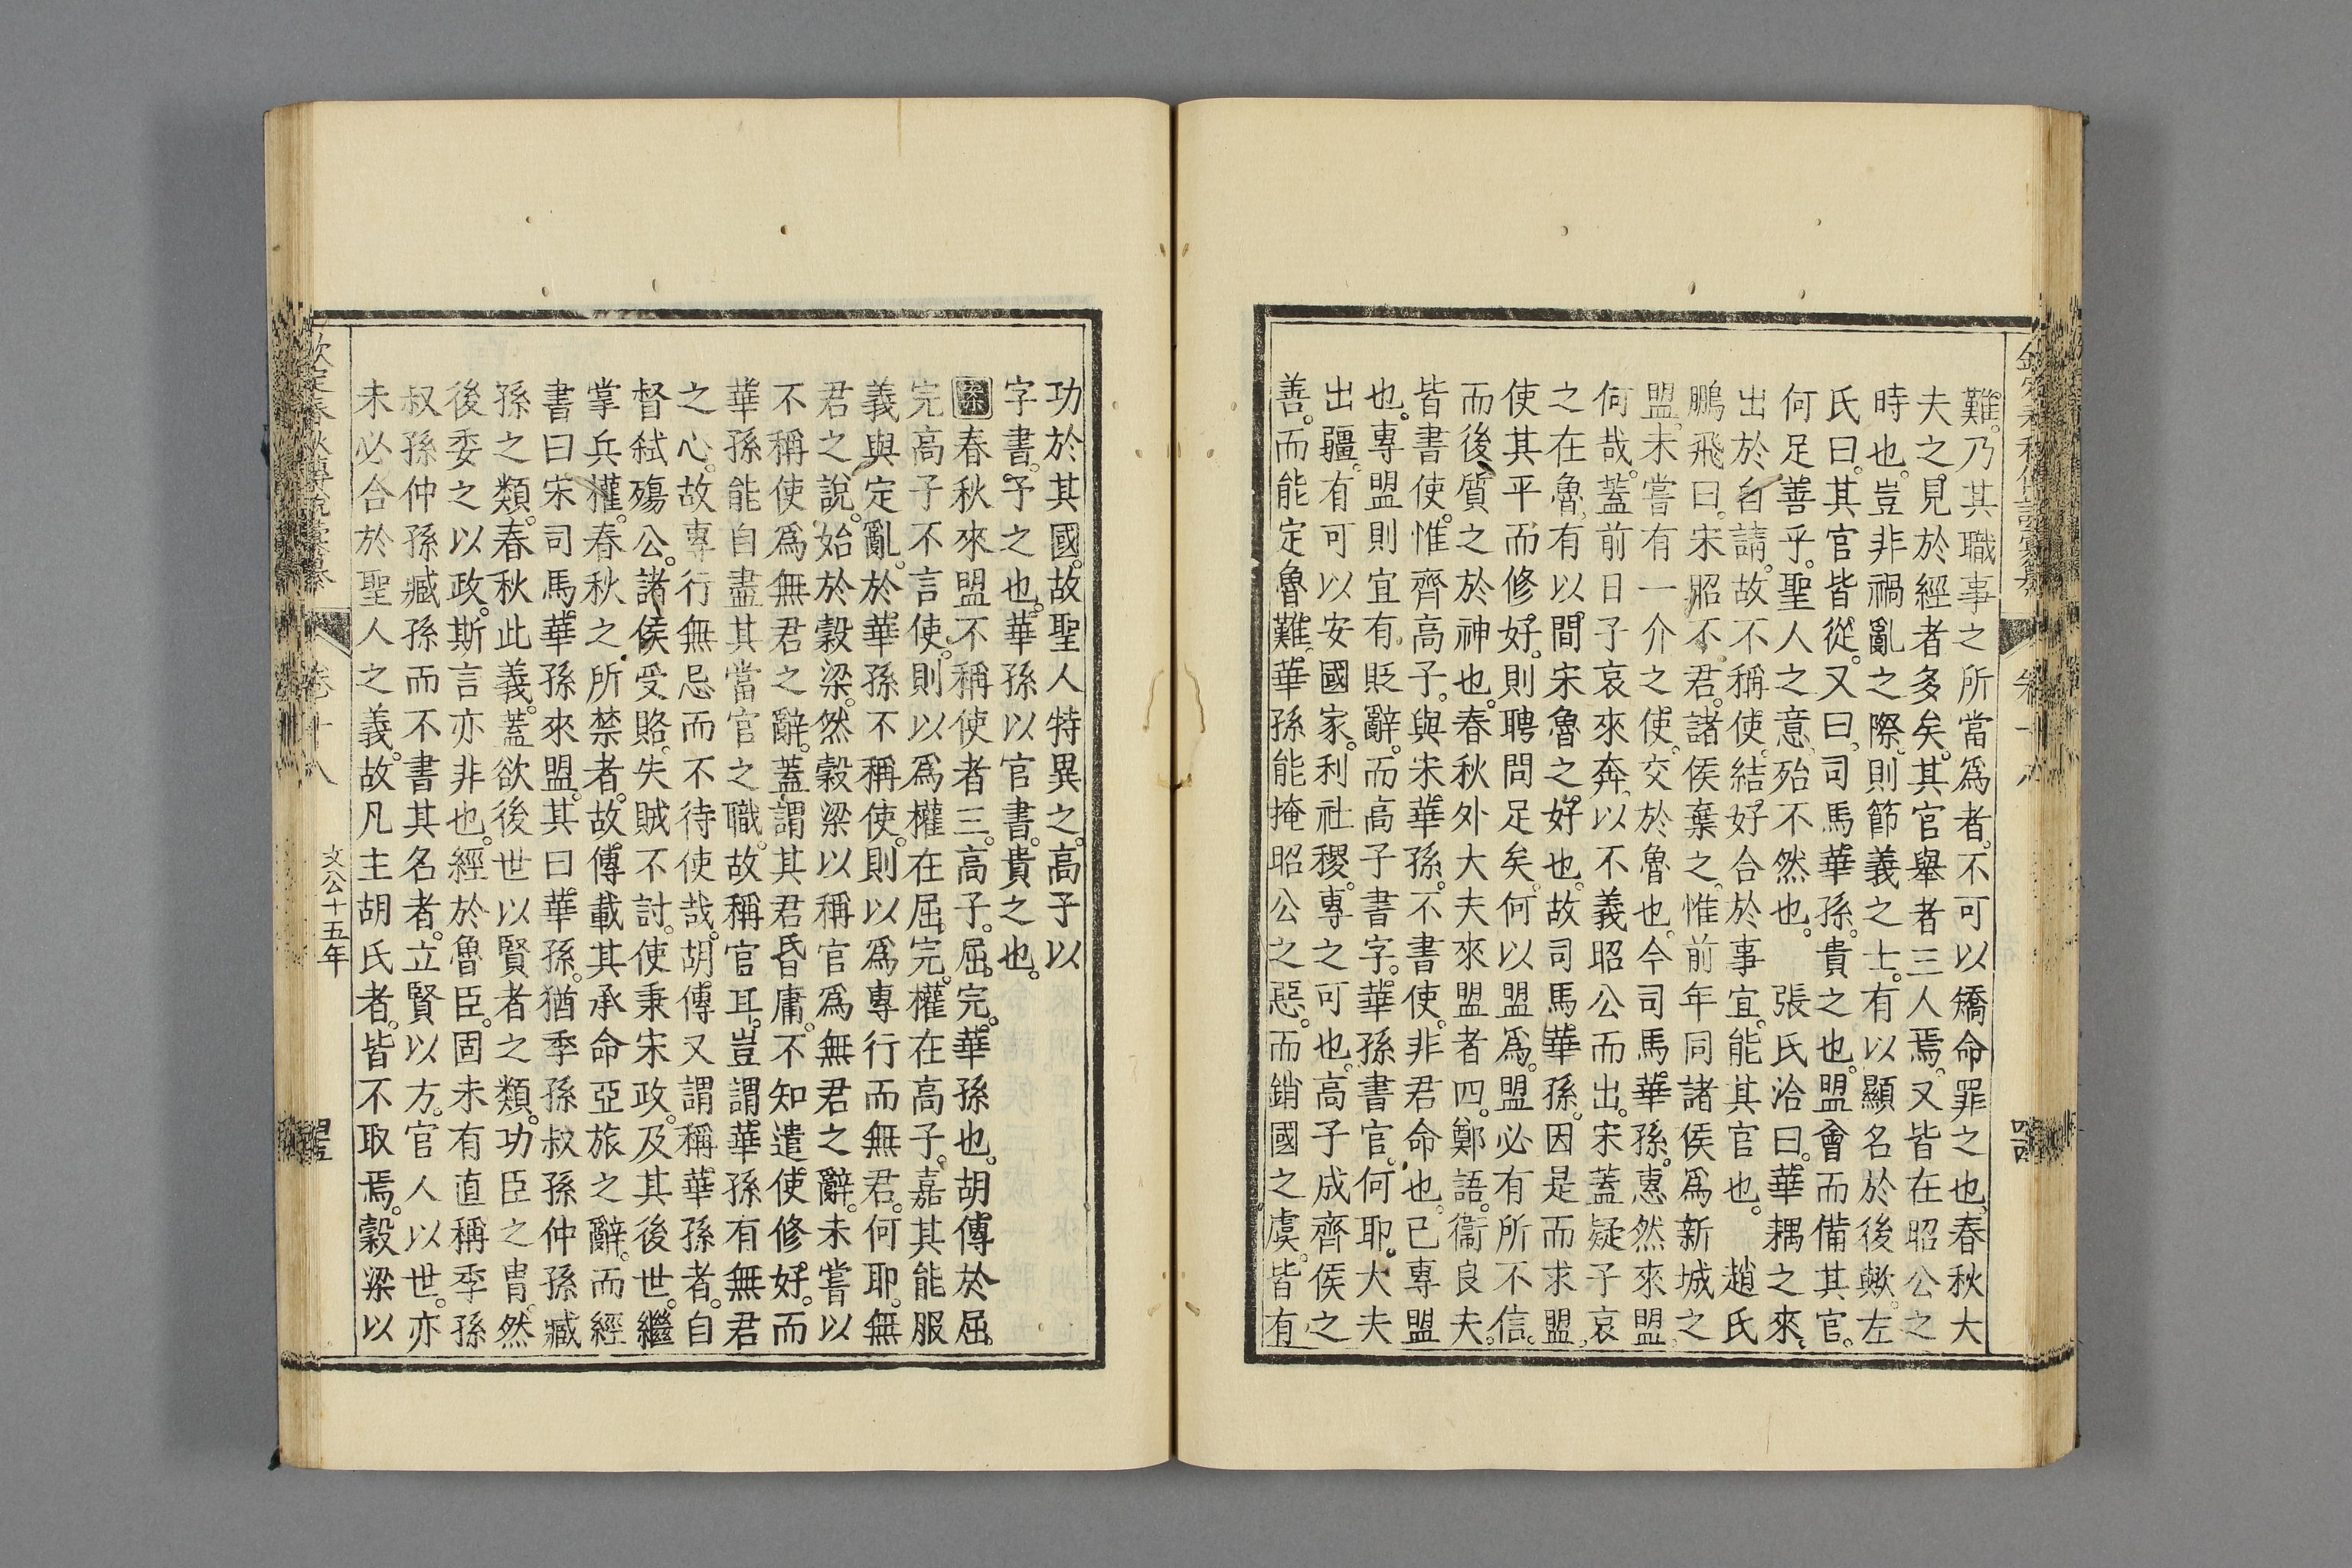 難。乃其職事之所當爲者。不可以矯命罪之也。春秋大
夫之見於經者多矣。其官舉者三人焉。又皆在昭公之
時也。豈非禍亂之際。則節義之士。有以顯名於後歟。左
氏曰。其官皆從。又曰。司馬華孫。貴之也。盟會而備其官。
何足善乎。聖人之意。殆不然也。　張氏洽曰。華耦之來。
出於自請。故不稱使。結好合於事宜。能其官也。　趙氏
鵬飛曰。宋昭不君。諸侯棄之。惟前年同諸侯爲新城之
盟。未嘗有一介之使。交於魯也。今司馬華孫。惠然來盟。
何哉。蓋前日子哀來奔。以不義昭公而出。宋蓋疑子哀
之在魯。有以間宋魯之好也。故司馬華孫。因是而求盟。
使其平而修好。則聘問足矣。何以盟爲。盟必有所不信。
而後質之於神也。春秋外大夫來盟者四。鄭語。衞良夫。
皆書使。惟齊高子。與宋華孫。不書使。非君命也。已專盟
也。專盟則宜有貶辭。而高子書字。華孫書官。何耶。大夫
出疆。有可以安國家。利社稷。專之可也。高子成齊侯之
善。而能定魯難。華孫能掩昭公之惡。而銷國之虞。皆有
功於其國。故聖人特異之。高子以
字書。予之也。華孫以官書。貴之也。
案春秋來盟不稱使者三。高子。屈完。華孫也。胡傳於屈
完高子不言使。則以爲權在屈完。權在高子。嘉其能服
義與定亂。於華孫不稱使。則以爲專行而無君。何耶。無
君之說。始於穀梁。然穀梁以稱官爲無君之辭。未嘗以
不稱使爲無君之辭。蓋謂其君昏庸。不知遣使修好。而
華孫能自盡其當官之職。故稱官耳。豈謂華孫有無君
之心。故專行無忌而不待使哉。胡傳又謂稱華孫者。自
督弑殤公。諸侯受賂。失賊不討。使秉宋政。及其後世。繼
掌兵權。春秋之所禁者。故傳載其承命亞旅之辭。而經
書曰宋司馬華孫來盟。其曰華孫。猶季孫叔孫仲孫臧
孫之類。春秋此義。蓋欲後世以賢者之類。功臣之冑。然
後委之以政。斯言亦非也。經於魯臣。固未有直稱季孫
叔孫仲孫臧孫而不書其名者。立賢以方。官人以世。亦
未必合於聖人之義。故凡主胡氏者。皆不取焉。穀梁以
欽定春秋傳說彙纂　卷十八　文公十五年